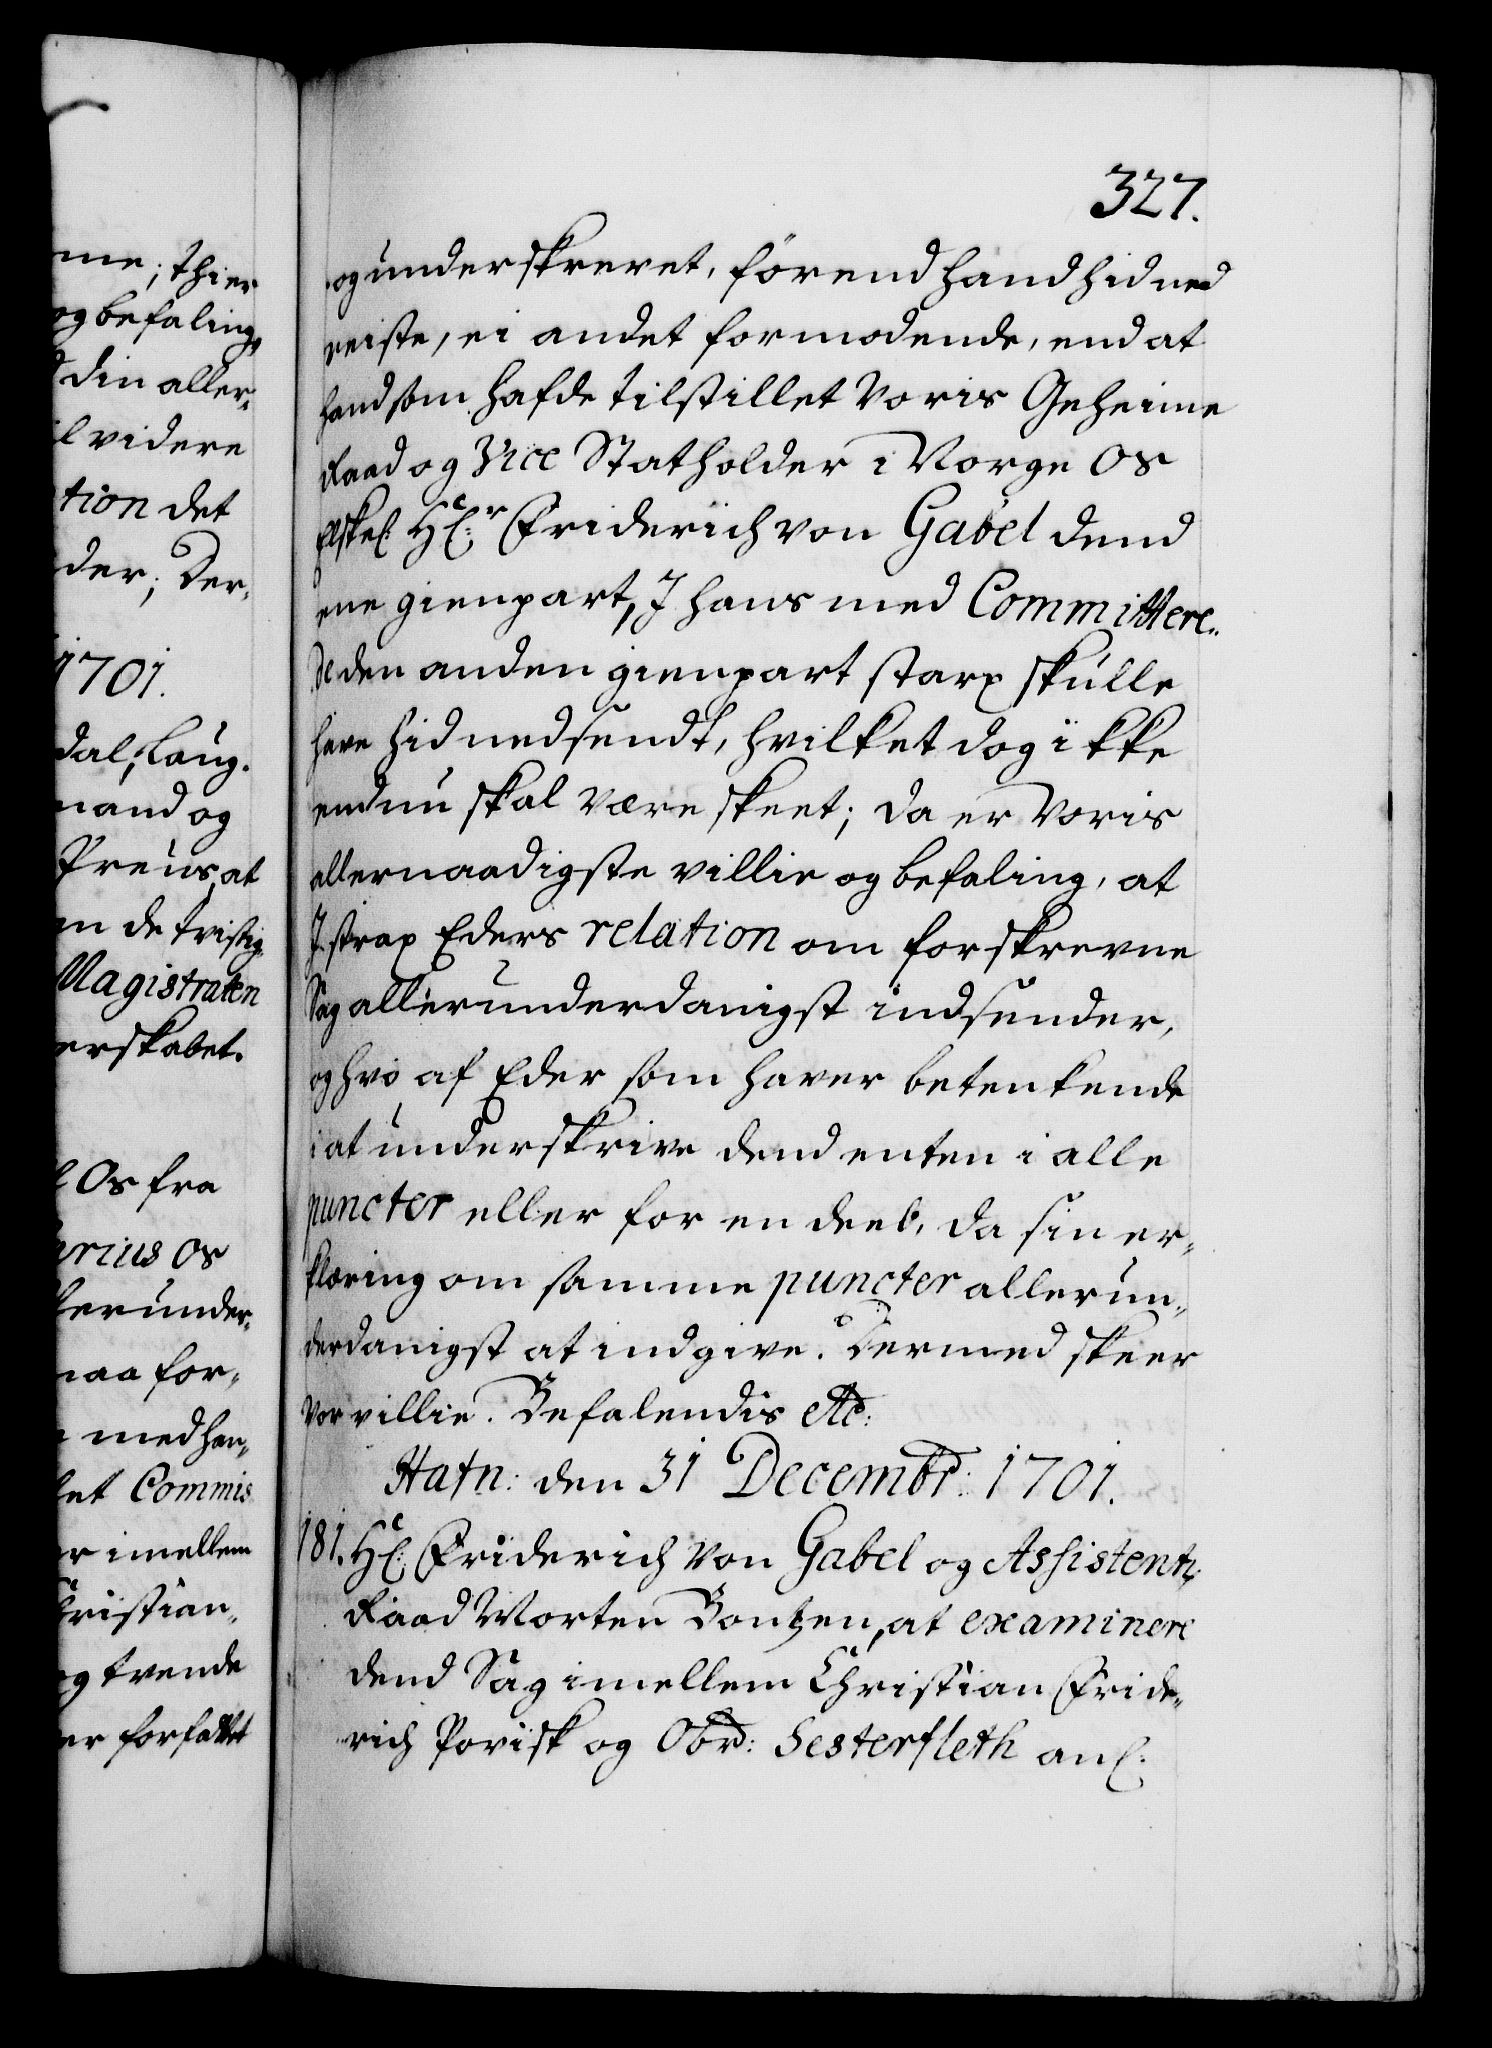 327.
me; thi er
og befaling,
din aller-
l videre
tion det
der; Der-
1701.
dal, Laug-
mand og
Preüs, at
n de tvistig-
Magistraten
erskabet.
Os fra
arius Os
lerunder-
maa for-
med han-
let Commis
er imellem
Christian-
og trende
er forfattet
og underskrevet, förend hand hid ned
reiste, ei andet formodende, end at
hand som hafde tilstillet Voris Geheime
Raad og Vice Statholder i Norge Os
Elskel: Hr: Friderich von Gabel dend
ene gienpart, I hans med Committere-
de den anden gienpart strax skulle
have hid nedsendt, hvilket dog ikke
endnu skal være skeet; da er Voris
allernaadigste villie og befaling, at
I strax Eders relation om forskrevne
Sag allerunderdanigst indsender,
og hvo af Eder som haver betenkende
i at underskrive dend enten i alle
puncter eller for en deel, da sin er-
klæring om samme puncter allerun-
derdanigst at indgive. Dermed skeer
Vor villie. Befalendis etc:
Hafn: den 31 Decembr: 1701.
181. Hr: Friderich Von Gabel og Assistentz
Raad Morten Bontzen, at examinere
dend Sag imellem Christian Fride-
rich Povisk og Obr: Sesterfleth anl: